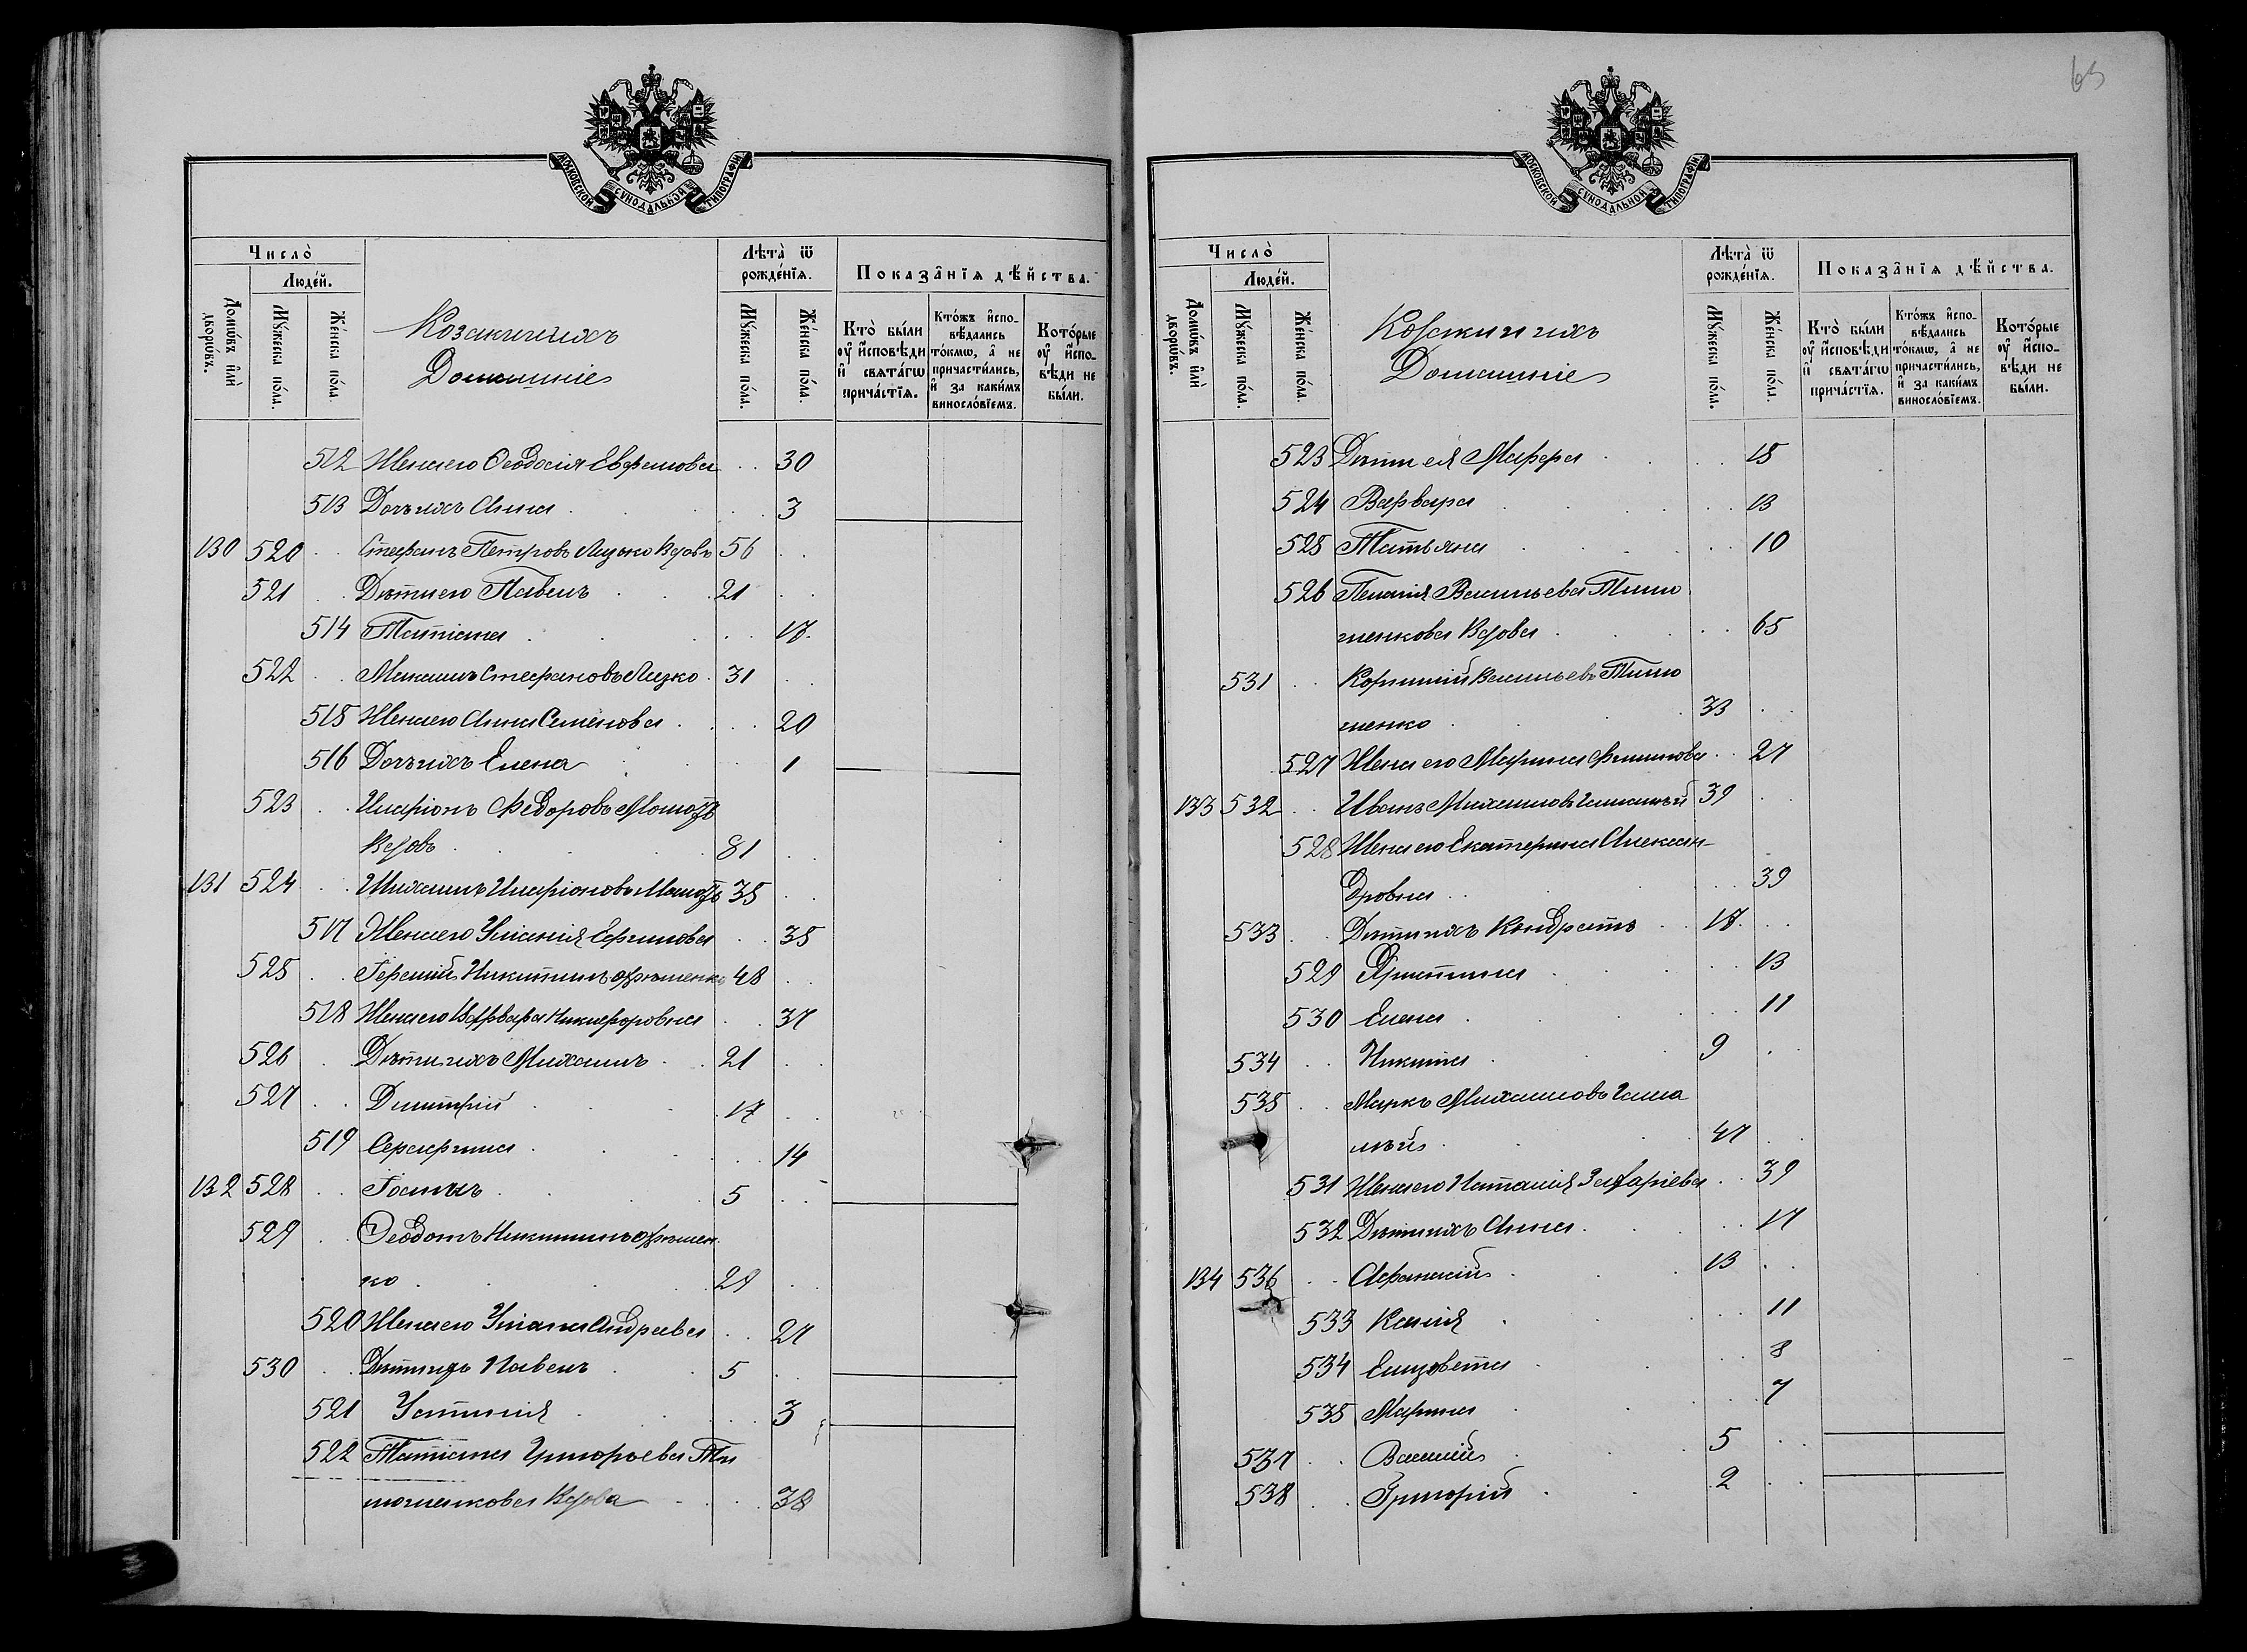 МОСКОВСКОЙ СѴНОДАЛЬНОЙ ТИПОГРАФІИ
Число̀
Людѣ́й.
Домѡ́въ и҆лѝ дворѡ́въ.
Мꙋ́жеска по́ла.
Же́нска по́ла.
Козаки и ихъ
Домашніе
Лѣта̀ ѿ рожде́нїѧ.
Мꙋ́жеска по́ла.
Же́нска по́ла.
Показа̂нїѧ дѣ́йства.
Кто̀ бы́ли ᲂу҆ и҆сповѣди и҆ свѧта́гѡ прича́стїѧ.
Кто́жъ и҆сповѣ́дались то́кмѡ, а҆ не причасти́лись, и҆ за каки́мъ винословїемъ.
Кото́рые ᲂу҆ и҆сповѣди не бы́ли.
512 Жена его Ѳеодосія Евфимова . . 30
513 Дочь ихъ Анна . . 3
130 520 . . Стефанъ Петровъ Лизко Вдовъ 56 . .
521 . . Дѣти его Павелъ . 21 . .
514 Татіана . . 17.
522 . . Михаилъ Стефановъ Лизко . 31 . .
515 Жена его Анна Семенова . . 20
516 Дочь ихъ Елена . . 1
523 . . Иларіонъ Федоровъ
Вдовъ . . 81 . .
131 524 . . Михаилъ Иларіоновъ 35 . .
517 Жена его Уліанія . . 35
525 . . Никитинъ 48 . .
518 Жена его Варвара Никифоровна . . 37
526 . Дѣти ихъ Михаилъ . . 21 . .
527 . . Димитрій . . 17 . .
519 Серафима . . 14
132 528 . . 5 . .
529 . . Ѳеодотъ Никитинъ
ко . . 29 . .
520 Жена его Уліана Андреева . . 27
530 . . Дѣти ихъ Павелъ . . 5 . .
521 Устинія . . 3
522 Татіана Григорьева Ти
мошенкова Вдова . . 38
65
МОСКОВСКОЙ СѴНОДАЛЬНОЙ ТИПОГРАФІИ
Число̀
Людѣ́й.
Домѡ́въ и҆лѝ дворѡ́въ.
Мꙋ́жеска по́ла.
Же́нска по́ла.
Козаки и ихъ
Домашніе
Лѣта̀ ѿ рожде́нїѧ.
Мꙋ́жеска по́ла.
Же́нска по́ла.
Показа̂нїѧ дѣ́йства.
Кто̀ бы́ли ᲂу҆ и҆сповѣди и҆ свѧта́гѡ прича́стїѧ.
Кто́жъ и҆сповѣ́дались то́кмѡ, а҆ не причасти́лись, и҆ за каки́мъ винословїемъ.
Кото́рые ᲂу҆ и҆сповѣди не бы́ли.
523 Дѣти ея Марфа . . 15
524 Варвара . . 13
525 Татьяна . . 10
526 Васильева Тимо
шенкова Вдова . . 65
531 . . Корнилій Васильевъ Тимо
шенко . 33 . .
527 Жена его Марина Филипова . . 27
133 532 . . Иванъ Михаиловъ 39 . .
528 Жена его Екатерина Алексан-
дровна . . 39
533 . . Дѣти ихъ Кондратъ . . 17. . .
529 Христина . . 13
530 Елена . . 11
534 . . Никита . 9 . .
535 . . Маркъ Михаиловъ
. 47 . .
531 Жена его Наталія Захаріева . . 39
532 Дѣти ихъ Анна . . 17
134 536 . . Афанасій . 13 . .
533 . . 11
534 Елизовета . . 8
535 Марина . . 7
537 . . Василій . 5 . .
538 . . Григорій . 2 . .